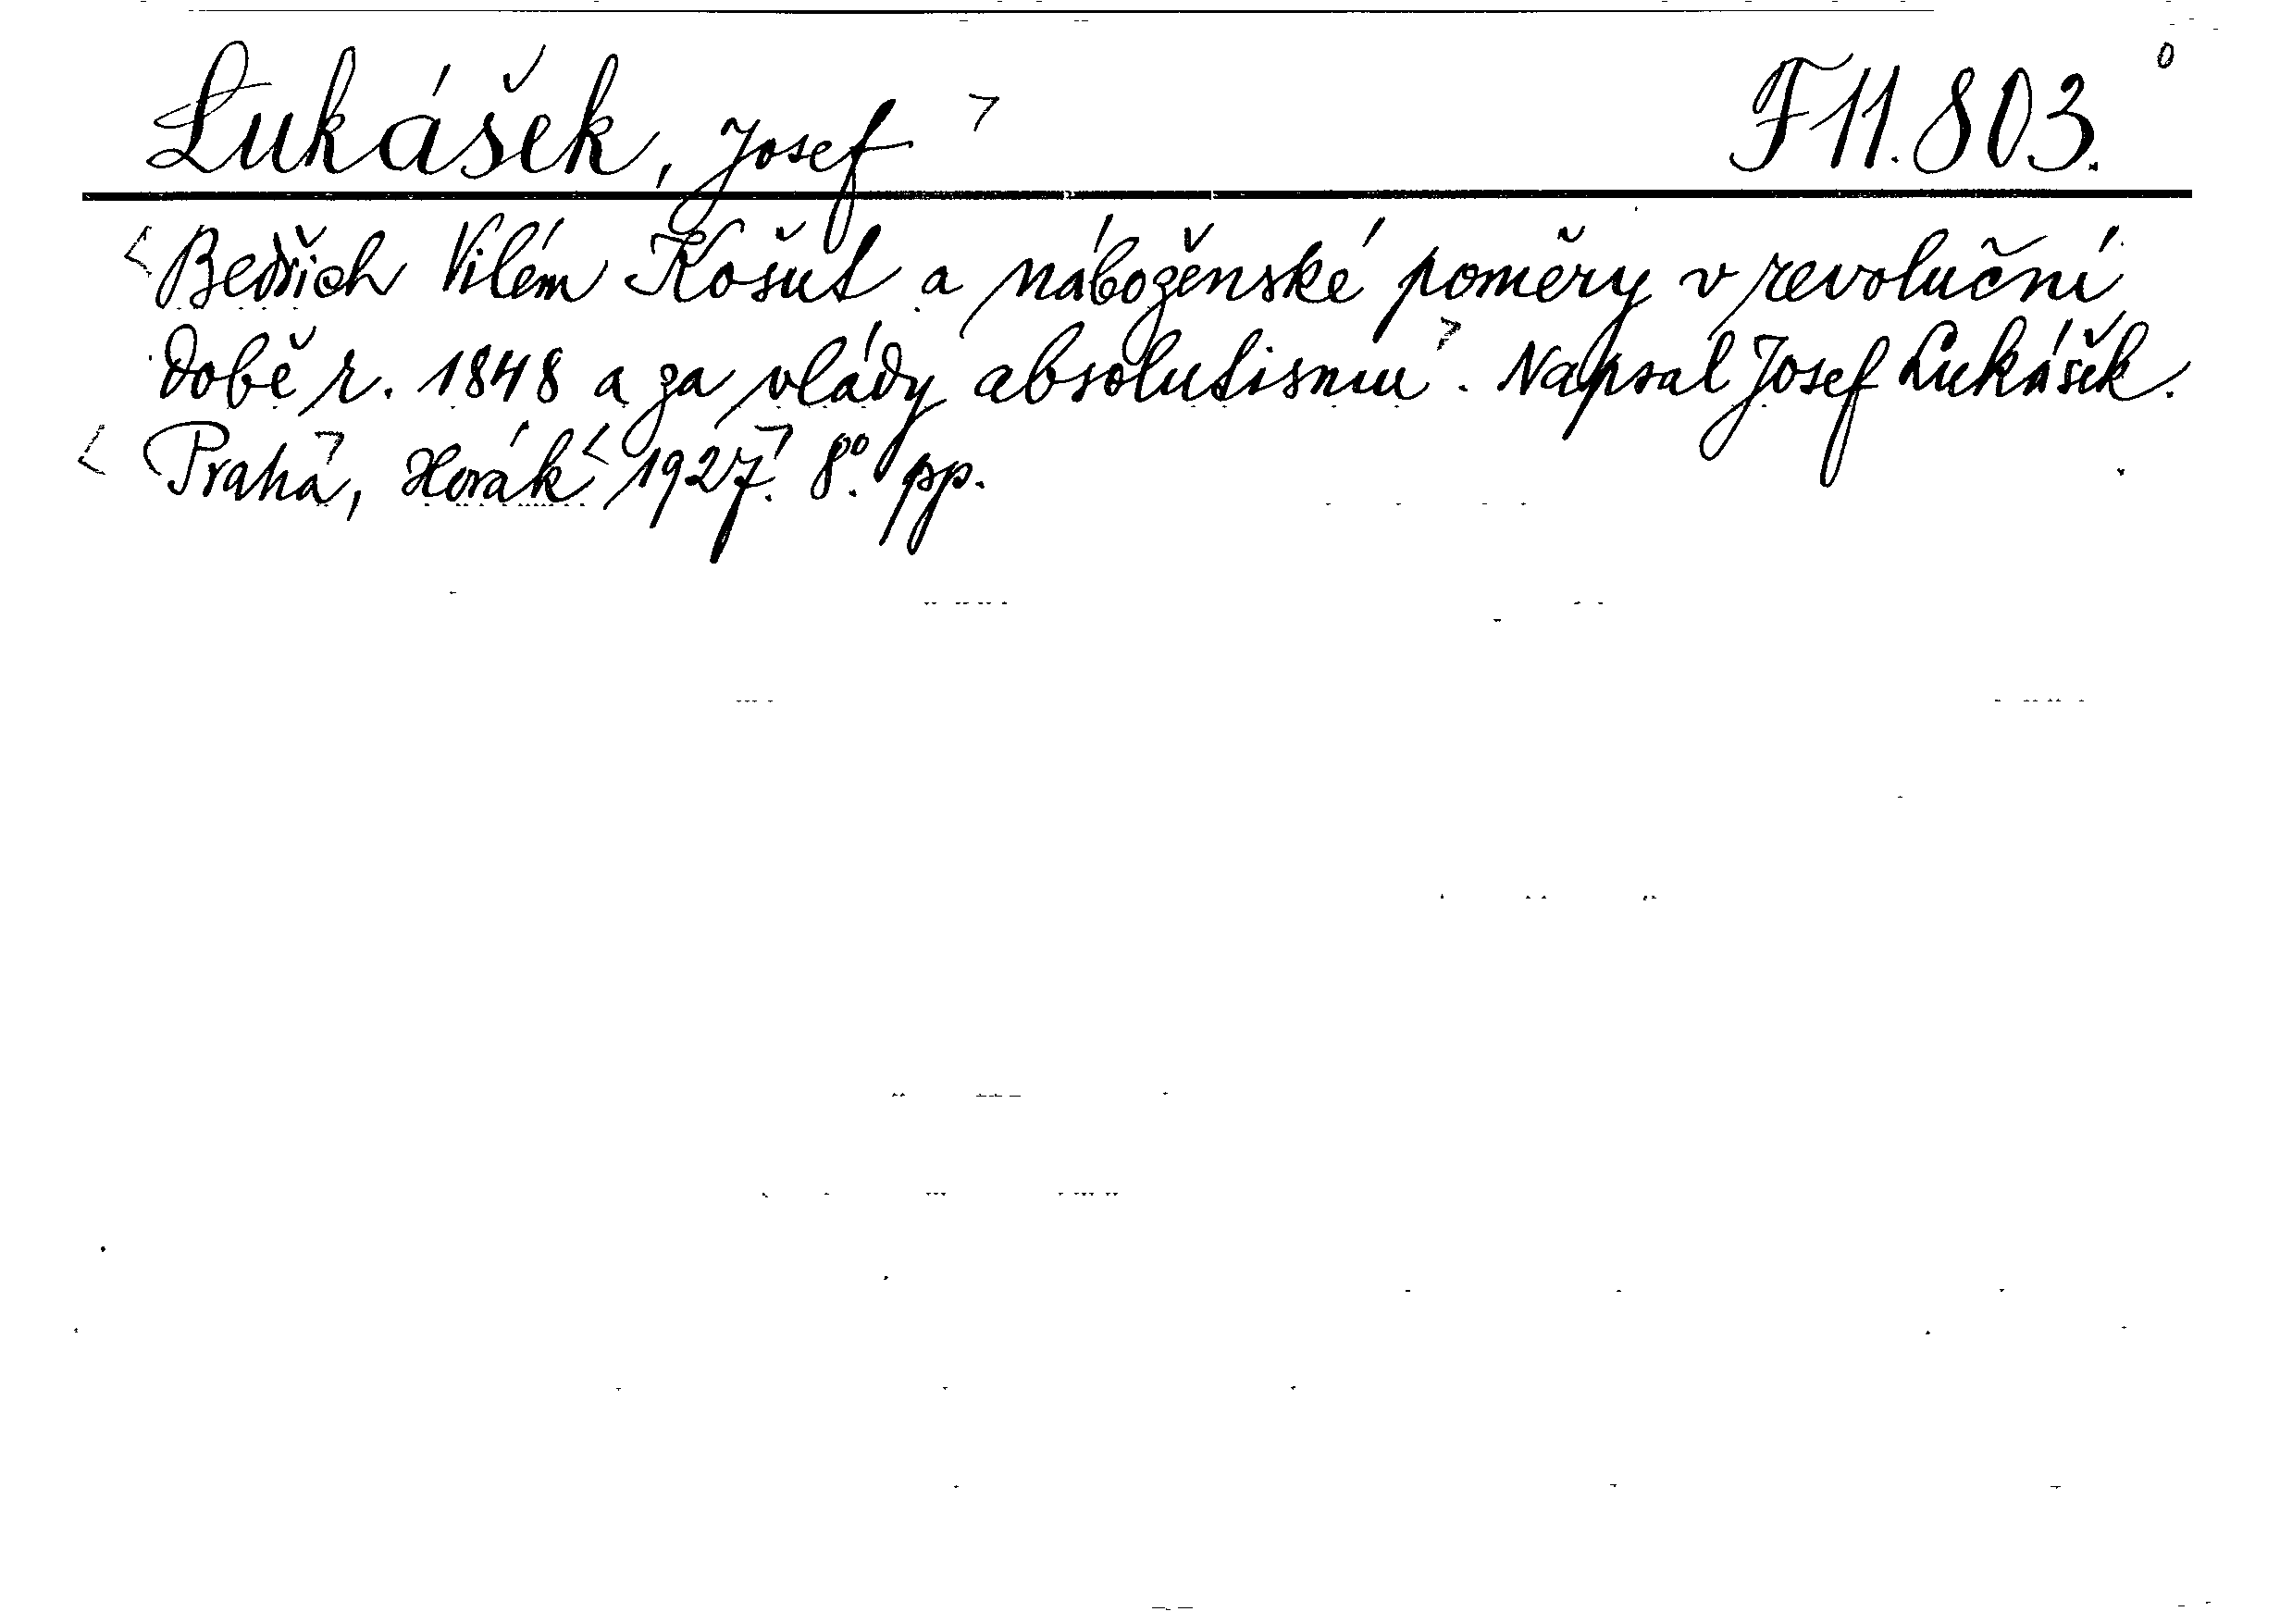 Lukášek, Josef F 11.803.
Bedřich Vilém Košut a náboženské poměry v revoluční
době r. 1848 a za vlády absolutismu. Napsal Josef Lukášek.
Praha, Horák 1927. 8°. pp.